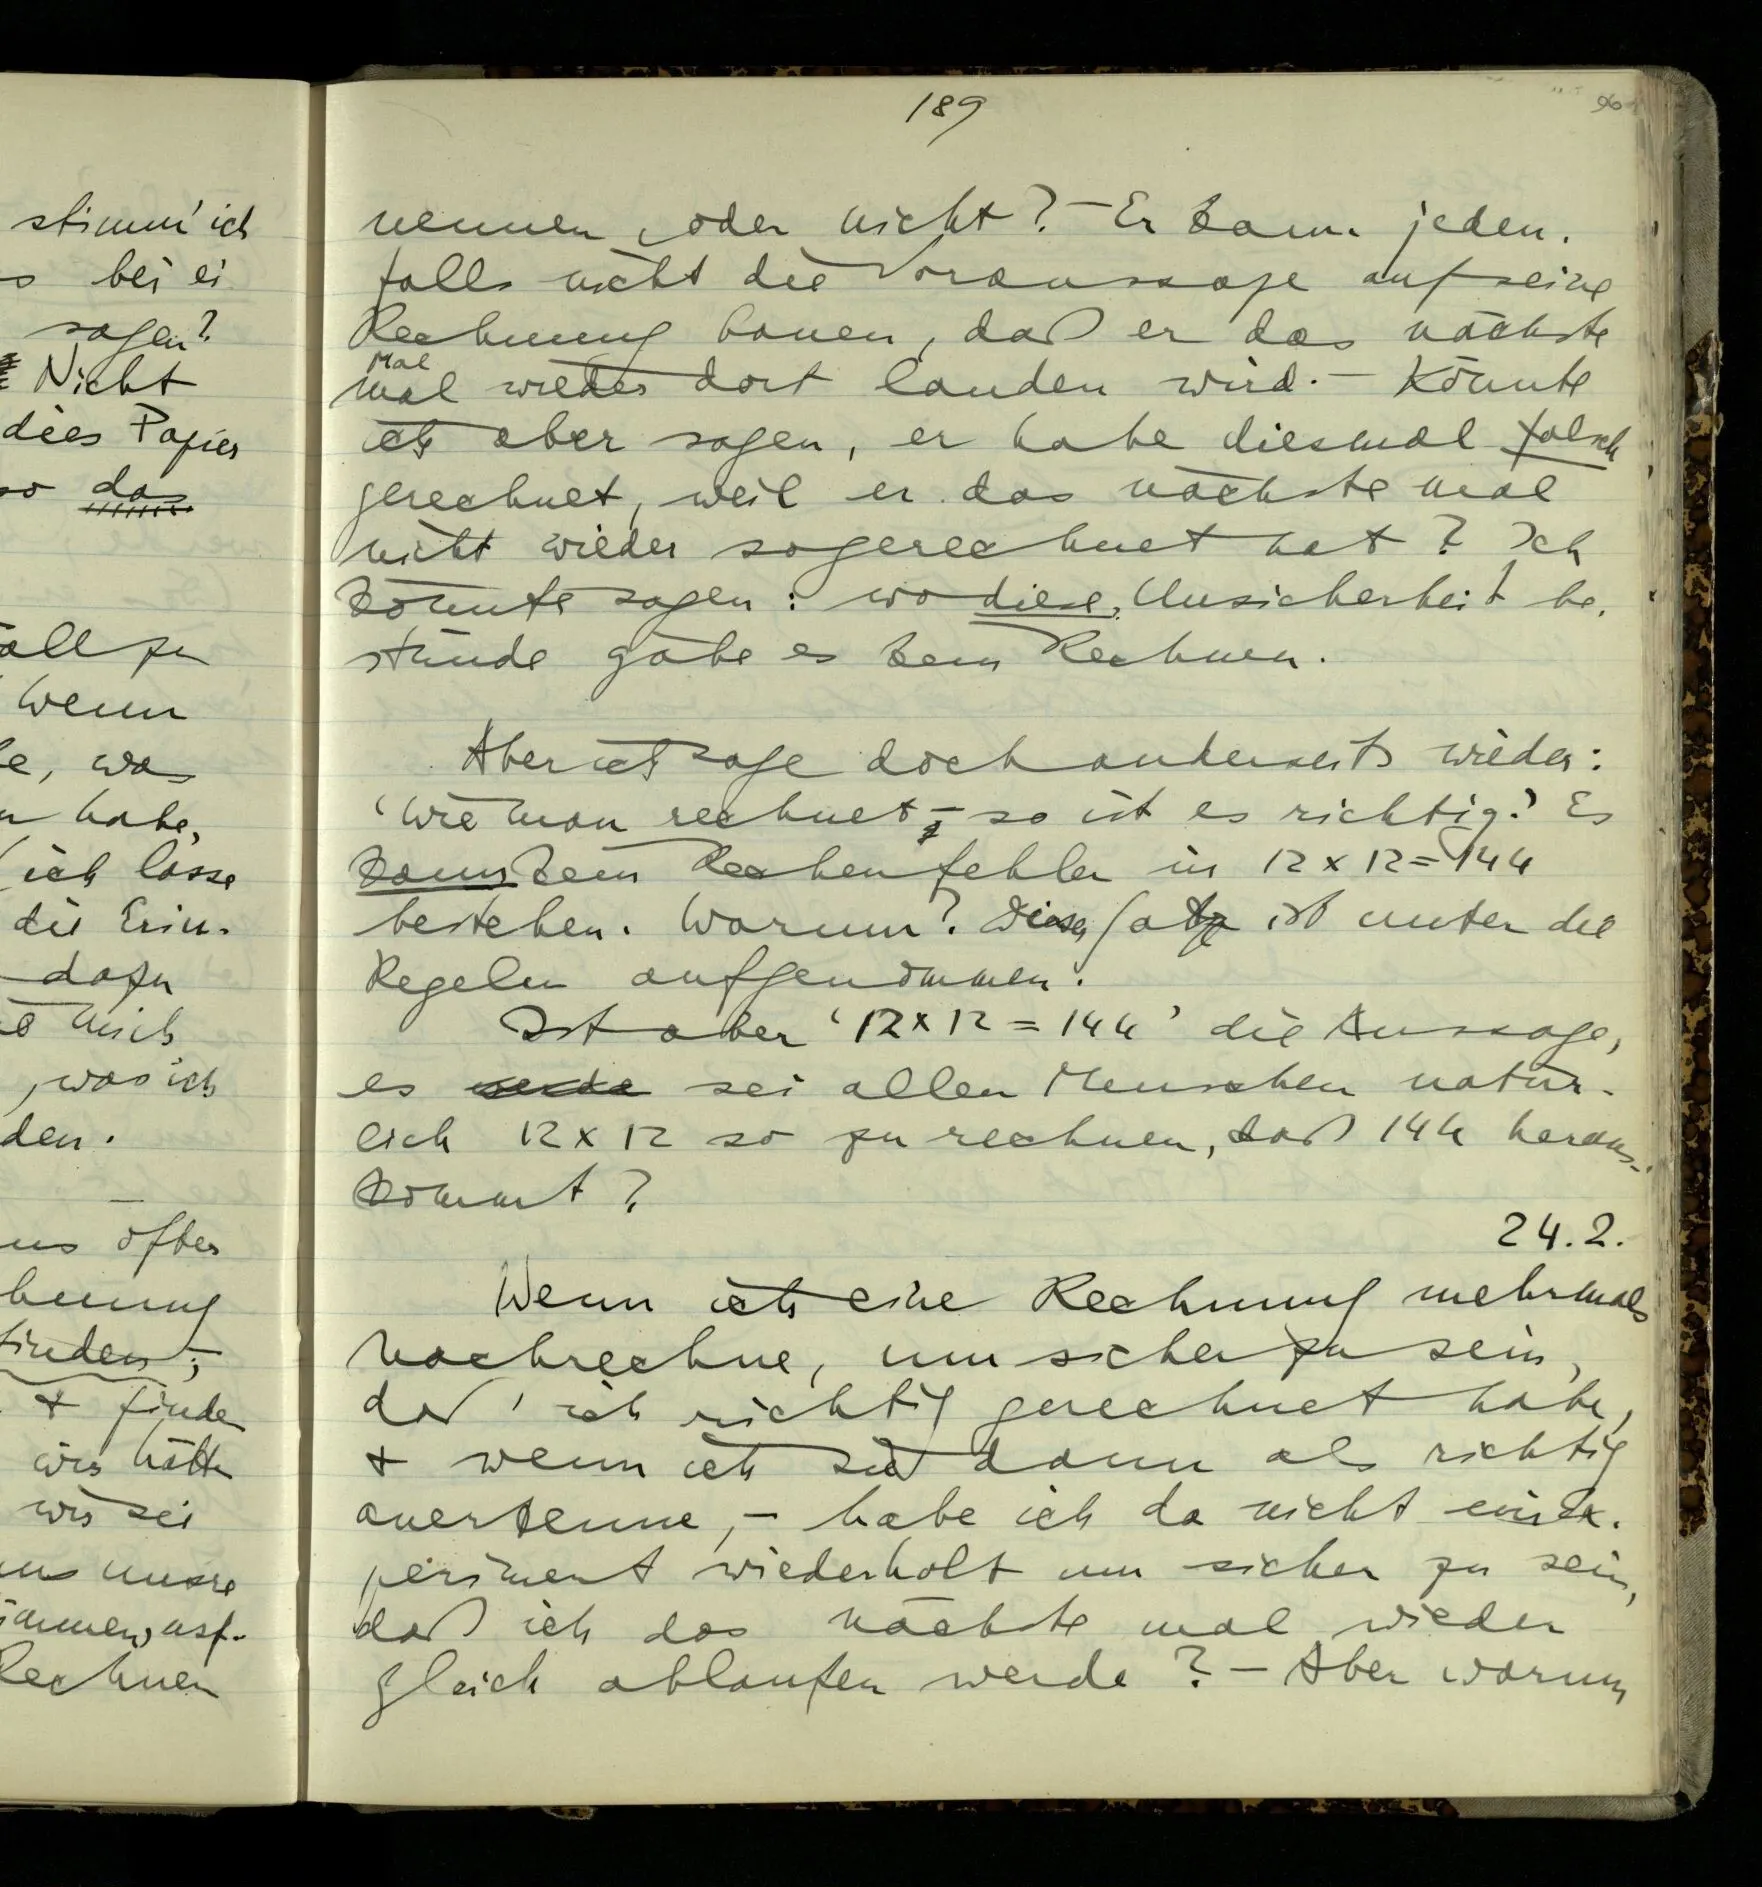 stimm' ich
bei ei
sagen?
Nicht
dies Papier
so das
all zu
Wenn
e, was
n habe,
(ich lasse
die Erin-
dazu
mich
, was ich
den.
uns öfter
hnung
finden;
+ finde
wir hätte
wir sei
uns unsre
stimmen, usf.
Rechnen
189
96
nennen, oder nicht? – Er kann jeden-
falls nicht die Voraussage auf seine
Rechnung bauen, daß er das nächste
Mal
mal wieder dort landen wird. – Könnte
ich aber sagen, er habe diesmal falsch
gerechnet, weil er das nächste mal
nicht wieder so gerechnet hat? Ich
könnte sagen: wo diese Unsicherheit be-
stünde gäbe es kein Rechnen.
Aber ich sage doch anderseits wieder:
'Wie man rechnet – so ist es richtig.' Es
kann kein Rechenfehler in 12 x 12 = 144
bestehen. Warum? Dieser Satz ist unter die
Regeln aufgenommen.
Ist aber '12 x 12 = 144' die Aussage,
es werde sei allen Menschen natür-
lich 12 x 12 so zu rechnen, daß 144 heraus-
kommt?
24.2.
Wenn ich eine Rechnung mehrmals
nachrechne, um sicher zu sein,
daß ich richtig gerechnet habe,
+ wenn ich sie dann als richtig
anerkenne, – habe ich da nicht ein Ex-
periment wiederholt um sicher zu sein,
daß ich das nächste mal wieder
gleich ablaufen werde? – Aber warum